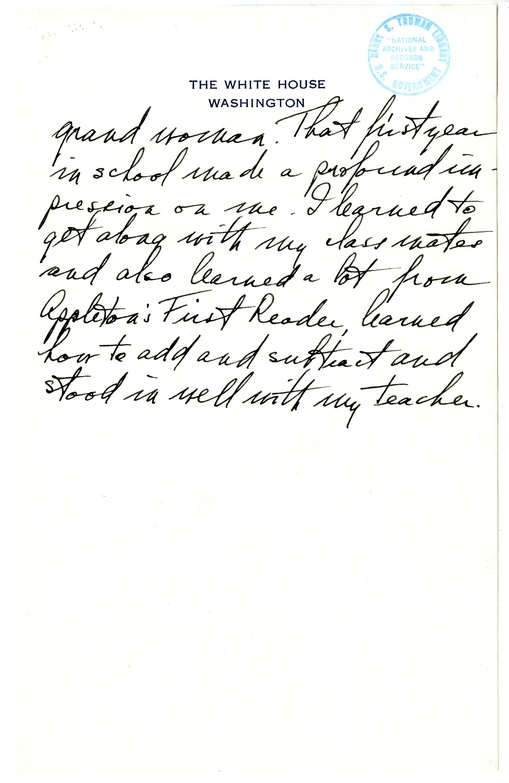 HARRY S. TRUMAN LIBRARY
"NATIONAL
ARCHIVES AND
RECORDS
SERVICE"
U.S. GOVERNMENT
THE WHITE HOUSE
WASHINGTON
grand woman. That first year
in school made a profound im-
pression on me. I learned to
get along with my class mates
and also learned a lot from
Appleton's First Reader, learned
how to add and subtract and
stood in well with my teacher.